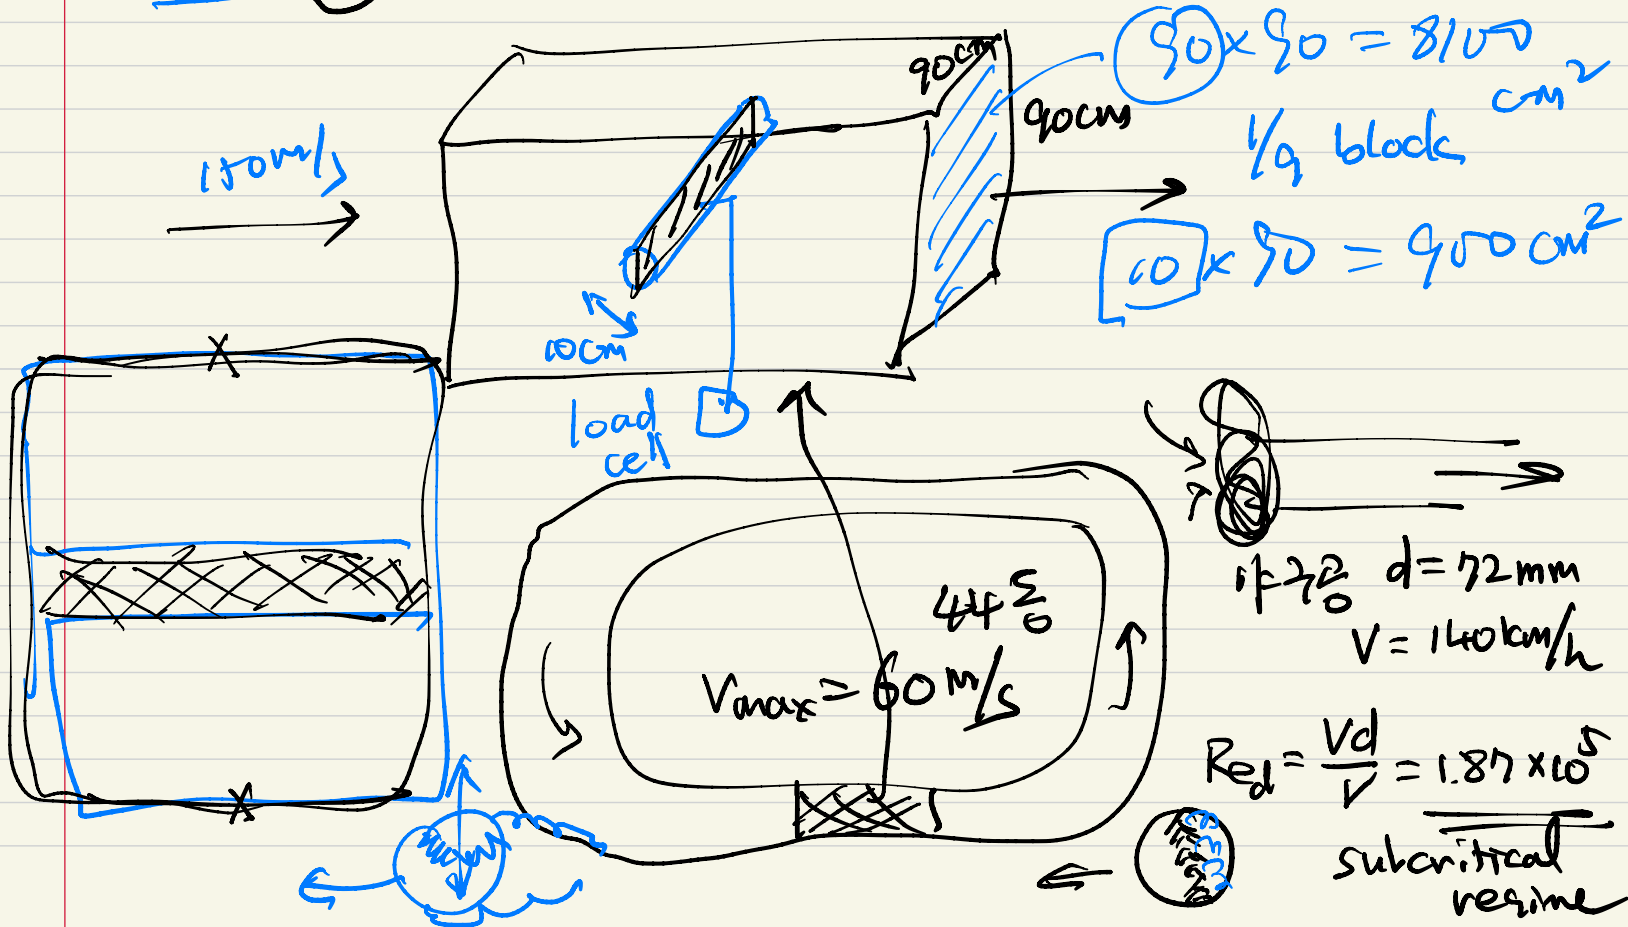 90cm
90cm
90×90 = 8100
cm²
1/9 block
10×90 = 900cm²
150m/s
10cm
load
cell
Vmax = 60 m/s
d = 72mm
V = 140km/h
Red = Vd/ν = 1.87×10⁵
subcritical
regime